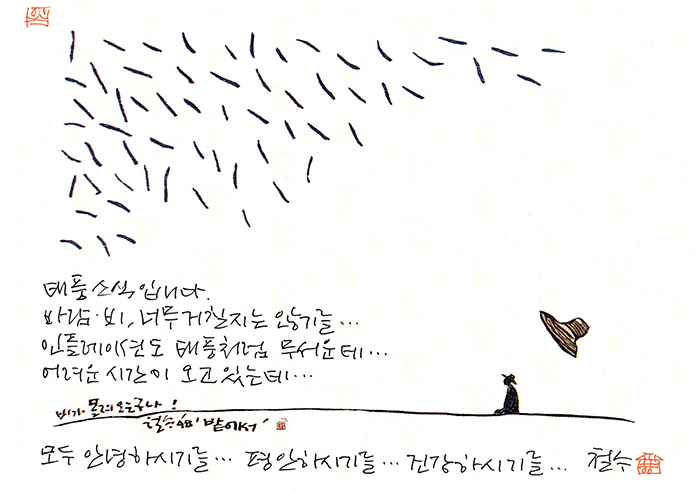 태풍소식입니다.
바람·비, 너무 거칠지는 않기를...
인플레이션도 태풍처럼 무서운데...
어려운 시간이 오고 있는데...
비가 몰려오는구나!
철수 '밭에서'
모두 안녕하시기를... 평안하시기를... 건강하시기를... 철수